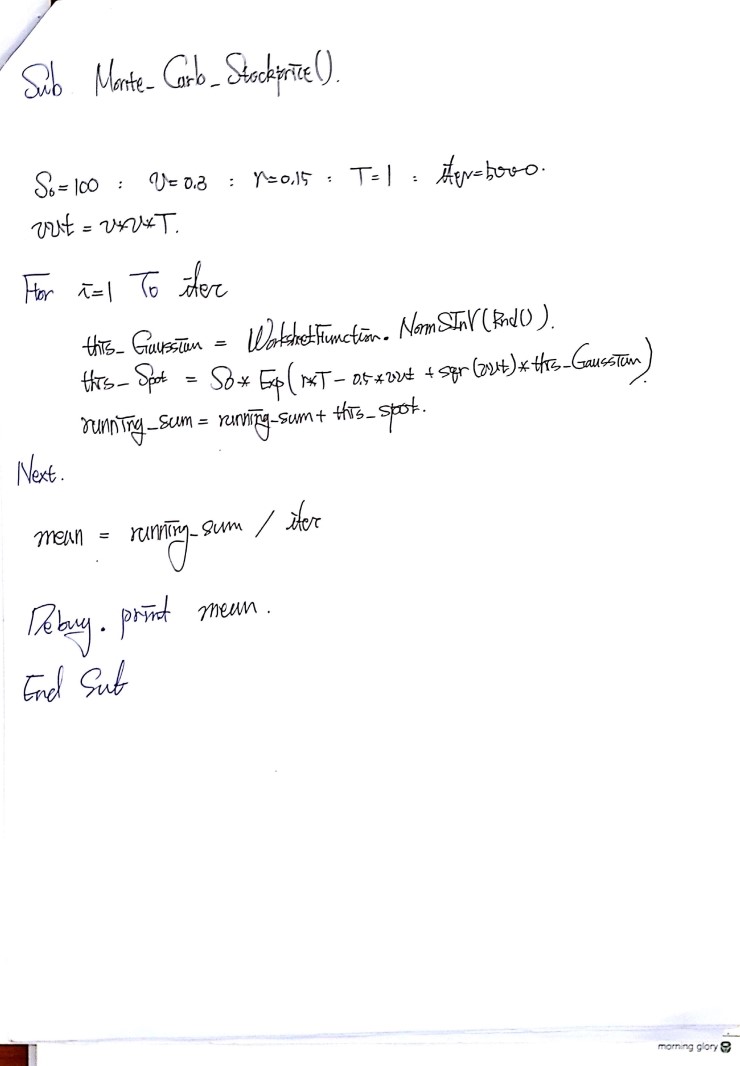 Sub Monte_Carlo_Stockprice().
S0=100 : v=0.3 : r=0.15 : T=1 : iter=5000.
vvt = v*v*T.
For i=1 To iter
this_Gaussian = WorksheetFunction.NormSInV(Rnd()).
this_Spot = S0* Exp(r*T - 0.5*vvt + sqr(vvt)*this_Gaussian)
running_sum = running_sum + this_spot.
Next.
mean = running_sum / iter
Debug.print mean.
End Sub
morning glory